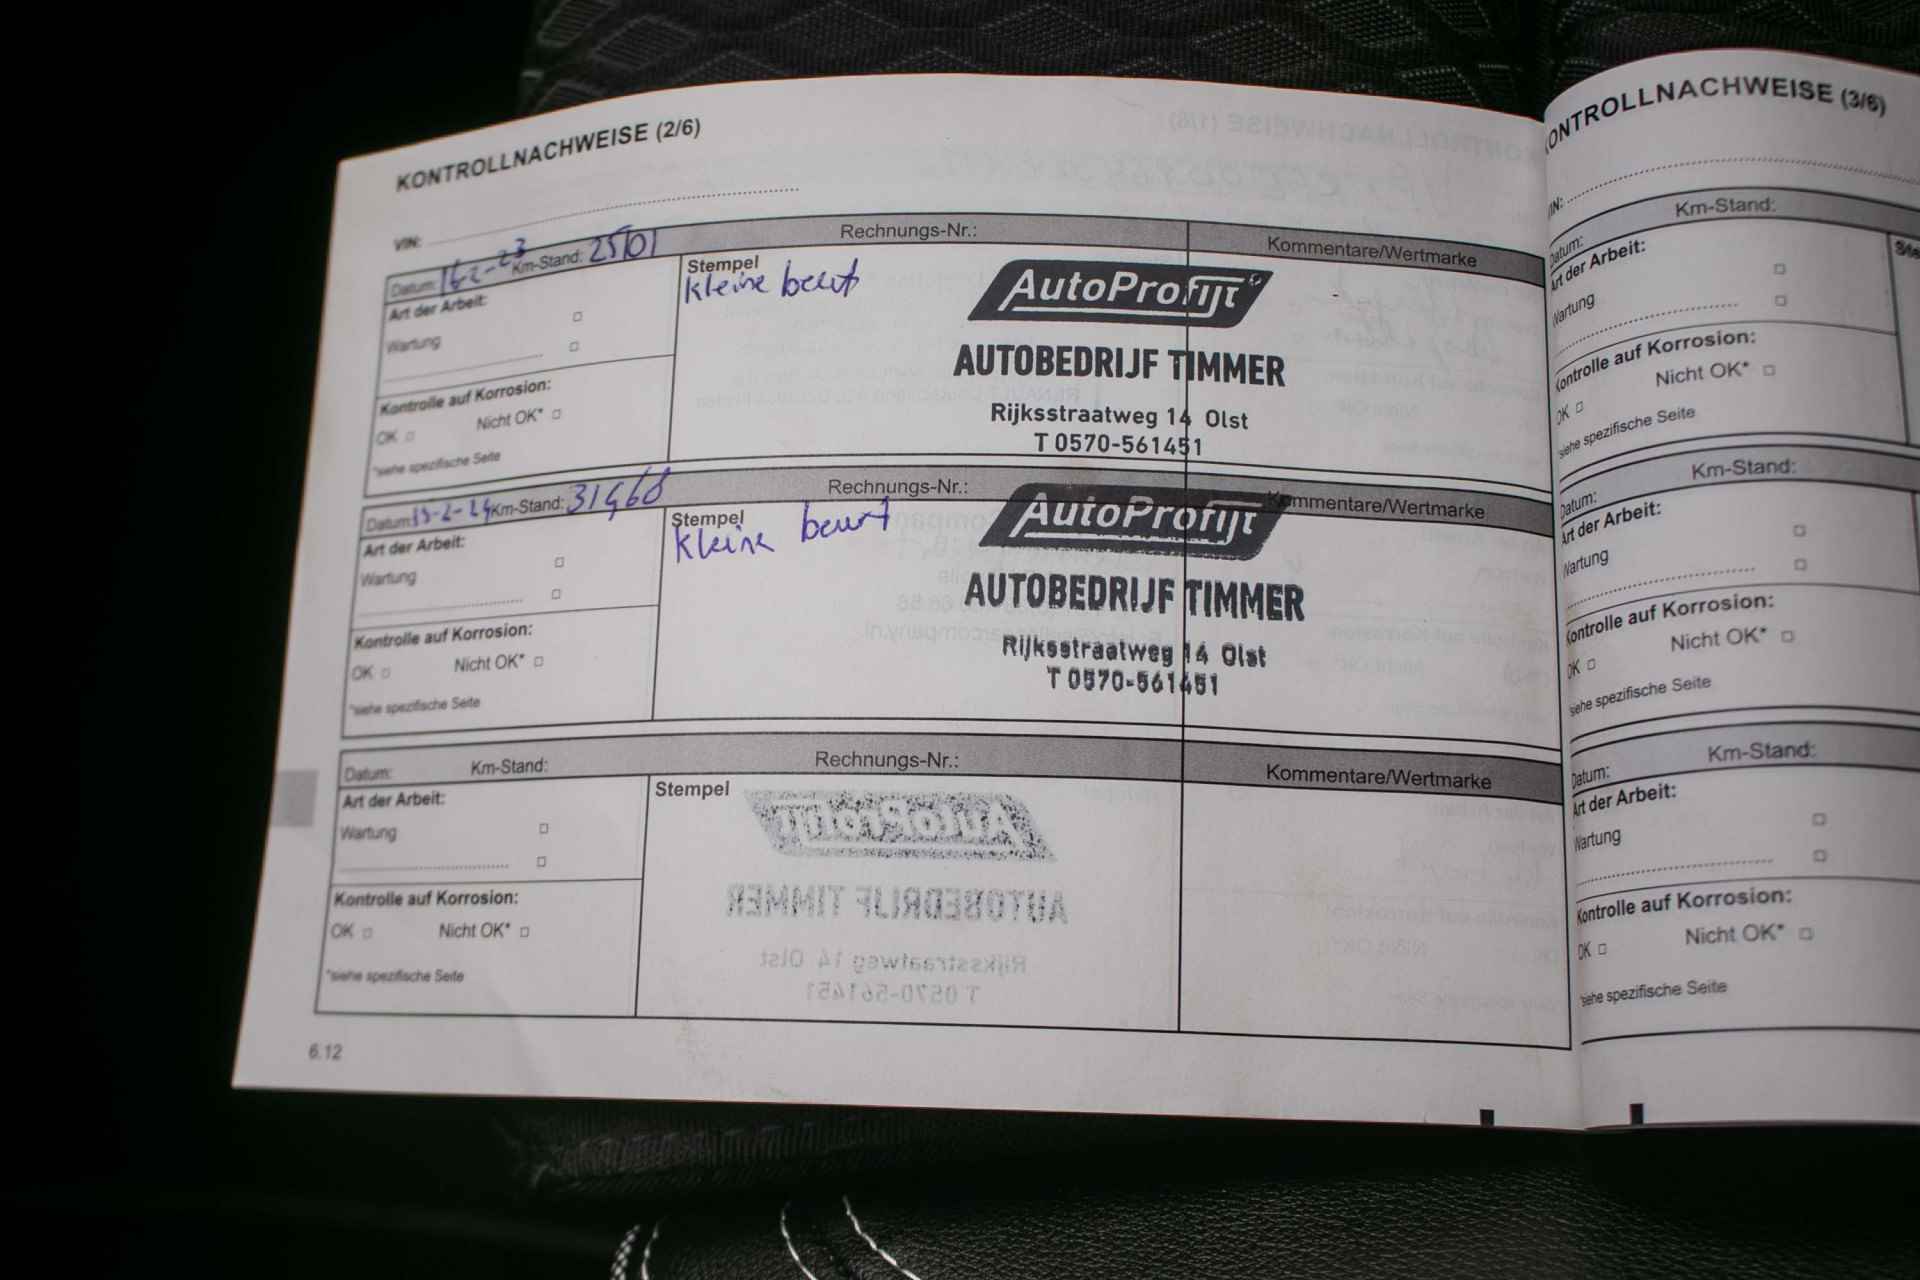 KONTROLLNACHWEISE (2/6)
VIN:
Datum: 16-2-23 Km-Stand: 25101 Rechnungs-Nr.: Kommentare/Wertmarke
Art der Arbeit:
Wartung
Kontrolle auf Korrosion:
OK Nicht OK*
*siehe spezifische Seite
Stempel
kleine beurt
AutoProfijt
AUTOBEDRIJF TIMMER
Rijksstraatweg 14 Olst
T 0570-561451
Datum: Km-Stand: 31468 Rechnungs-Nr.: Kommentare/Wertmarke
Art der Arbeit:
Wartung
Kontrolle auf Korrosion:
OK Nicht OK*
*siehe spezifische Seite
Stempel
kleine beurt
AutoProfijt
AUTOBEDRIJF TIMMER
Rijksstraatweg 14 Olst
T 0570-561451
Datum: Km-Stand: Rechnungs-Nr.: Kommentare/Wertmarke
Art der Arbeit:
Wartung
Kontrolle auf Korrosion:
OK Nicht OK*
*siehe spezifische Seite
Stempel
AutoProfijt
AUTOBEDRIJF TIMMER
Rijksstraatweg 14 Olst
T 0570-561451
6.12
KONTROLLNACHWEISE (3/6)
VIN:
Datum: Km-Stand:
Art der Arbeit:
Wartung
Kontrolle auf Korrosion:
OK Nicht OK*
*siehe spezifische Seite
Datum: Km-Stand:
Art der Arbeit:
Wartung
Kontrolle auf Korrosion:
OK Nicht OK*
*siehe spezifische Seite
Datum: Km-Stand:
Art der Arbeit:
Wartung
Kontrolle auf Korrosion:
OK Nicht OK*
*siehe spezifische Seite